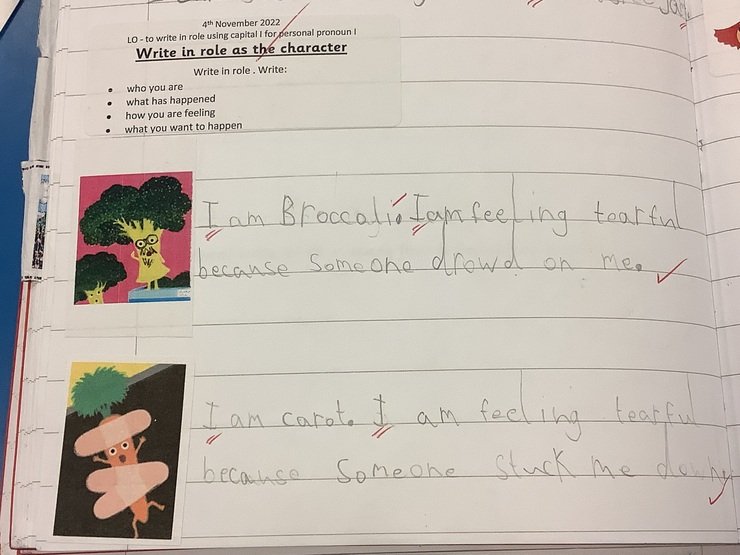 4th November 2022
LO - to write in role using capital I for personal pronoun I
Write in role as the character
Write in role . Write:
• who you are
• what has happened
• how you are feeling
• what you want to happen
I am Broccali. I am feeling tearful
because someone drowd on me.
I am carot. I am feeling tearful
because someone stuck me down